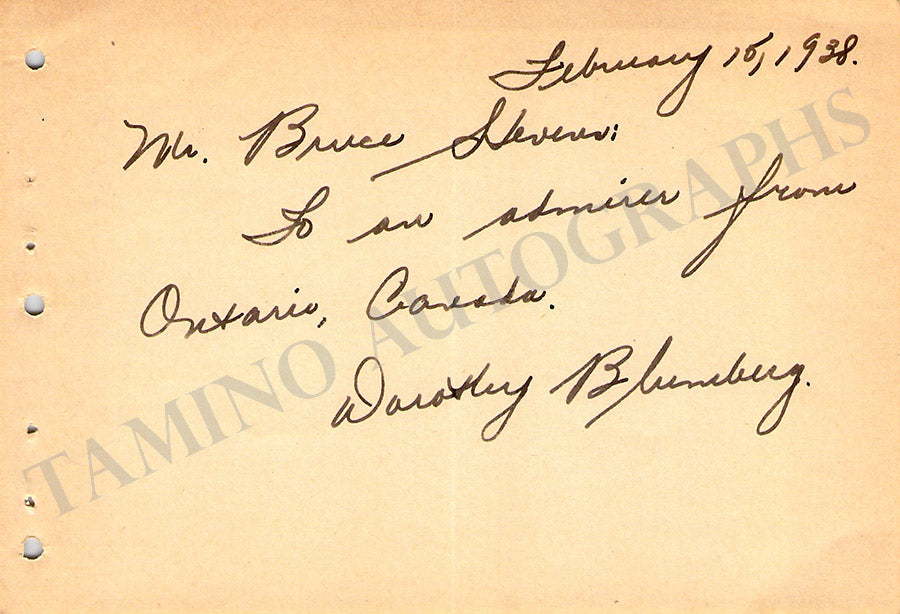 February 15, 1938.
Mr. Bruce Stevens:
To an admirer from
Ontario, Canada.
Dorothy Blumberg.
TAMINO AUTOGRAPHS